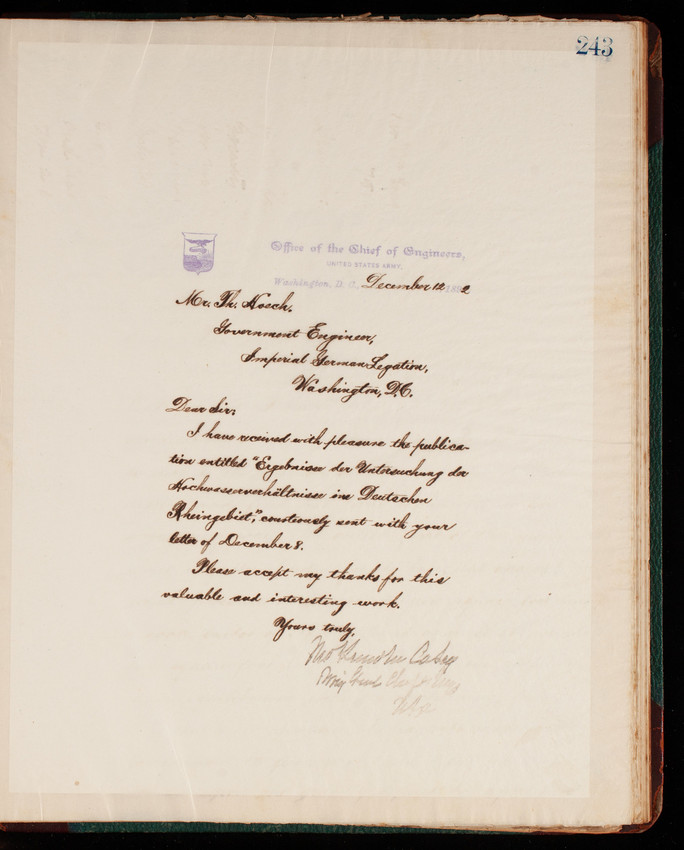 243
Office of the Chief of Engineers,
UNITED STATES ARMY.
Washington, D. C., December 12 1892
Mr. Th. Hoech,
Government Engineer,
Imperial German Legation,
Washington, D.C.
Dear Sir:
I have received with pleasure the publica-
tion entitled "Ergebnisse der Untersuchung der
Hochwasserverhältnisse im Deutschen
Rheingebiet", courteously sent with your
letter of December 8.
Please accept my thanks for this
valuable and interesting work.
Yours truly,
Thos Lincoln Casey
Brig Genl Chief of Eng